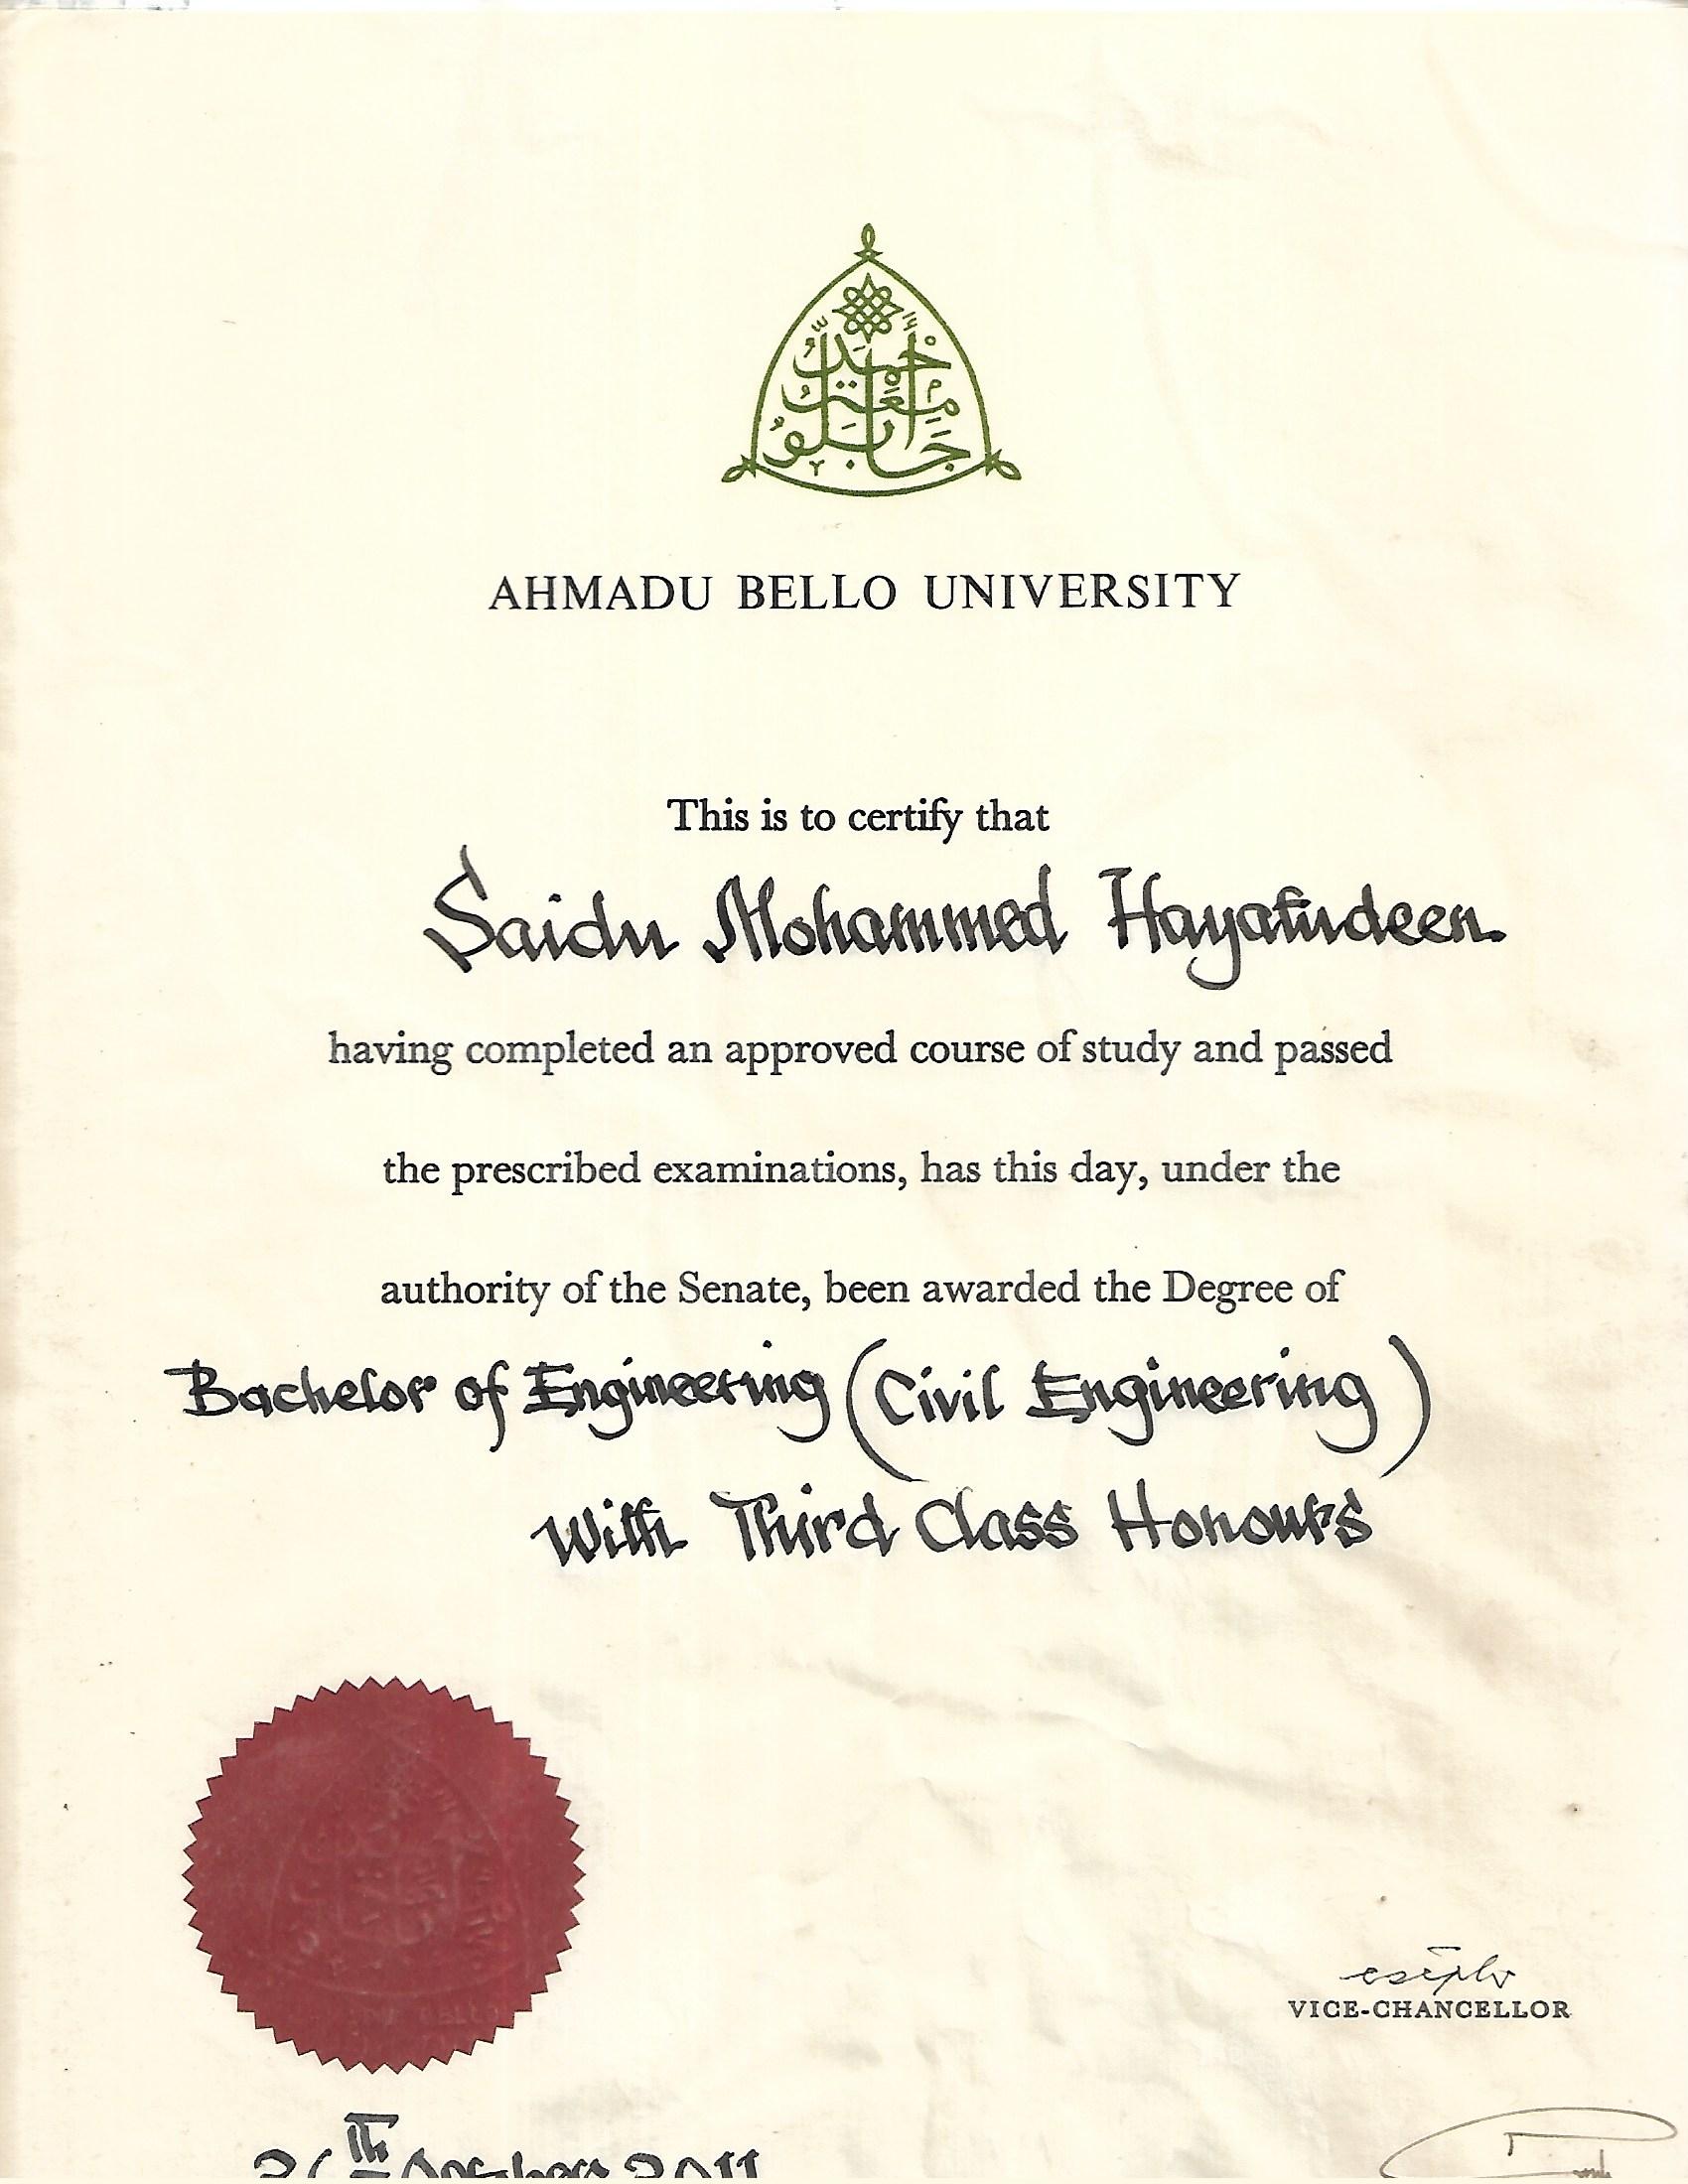 أحمد
جامعة
بلو
AHMADU BELLO UNIVERSITY
This is to certify that
Saidu Mohammed Hayatudeen
having completed an approved course of study and passed
the prescribed examinations, has this day, under the
authority of the Senate, been awarded the Degree of
Bachelor of Engineering (Civil Engineering)
With Third Class Honours
VICE-CHANCELLOR
October 2011